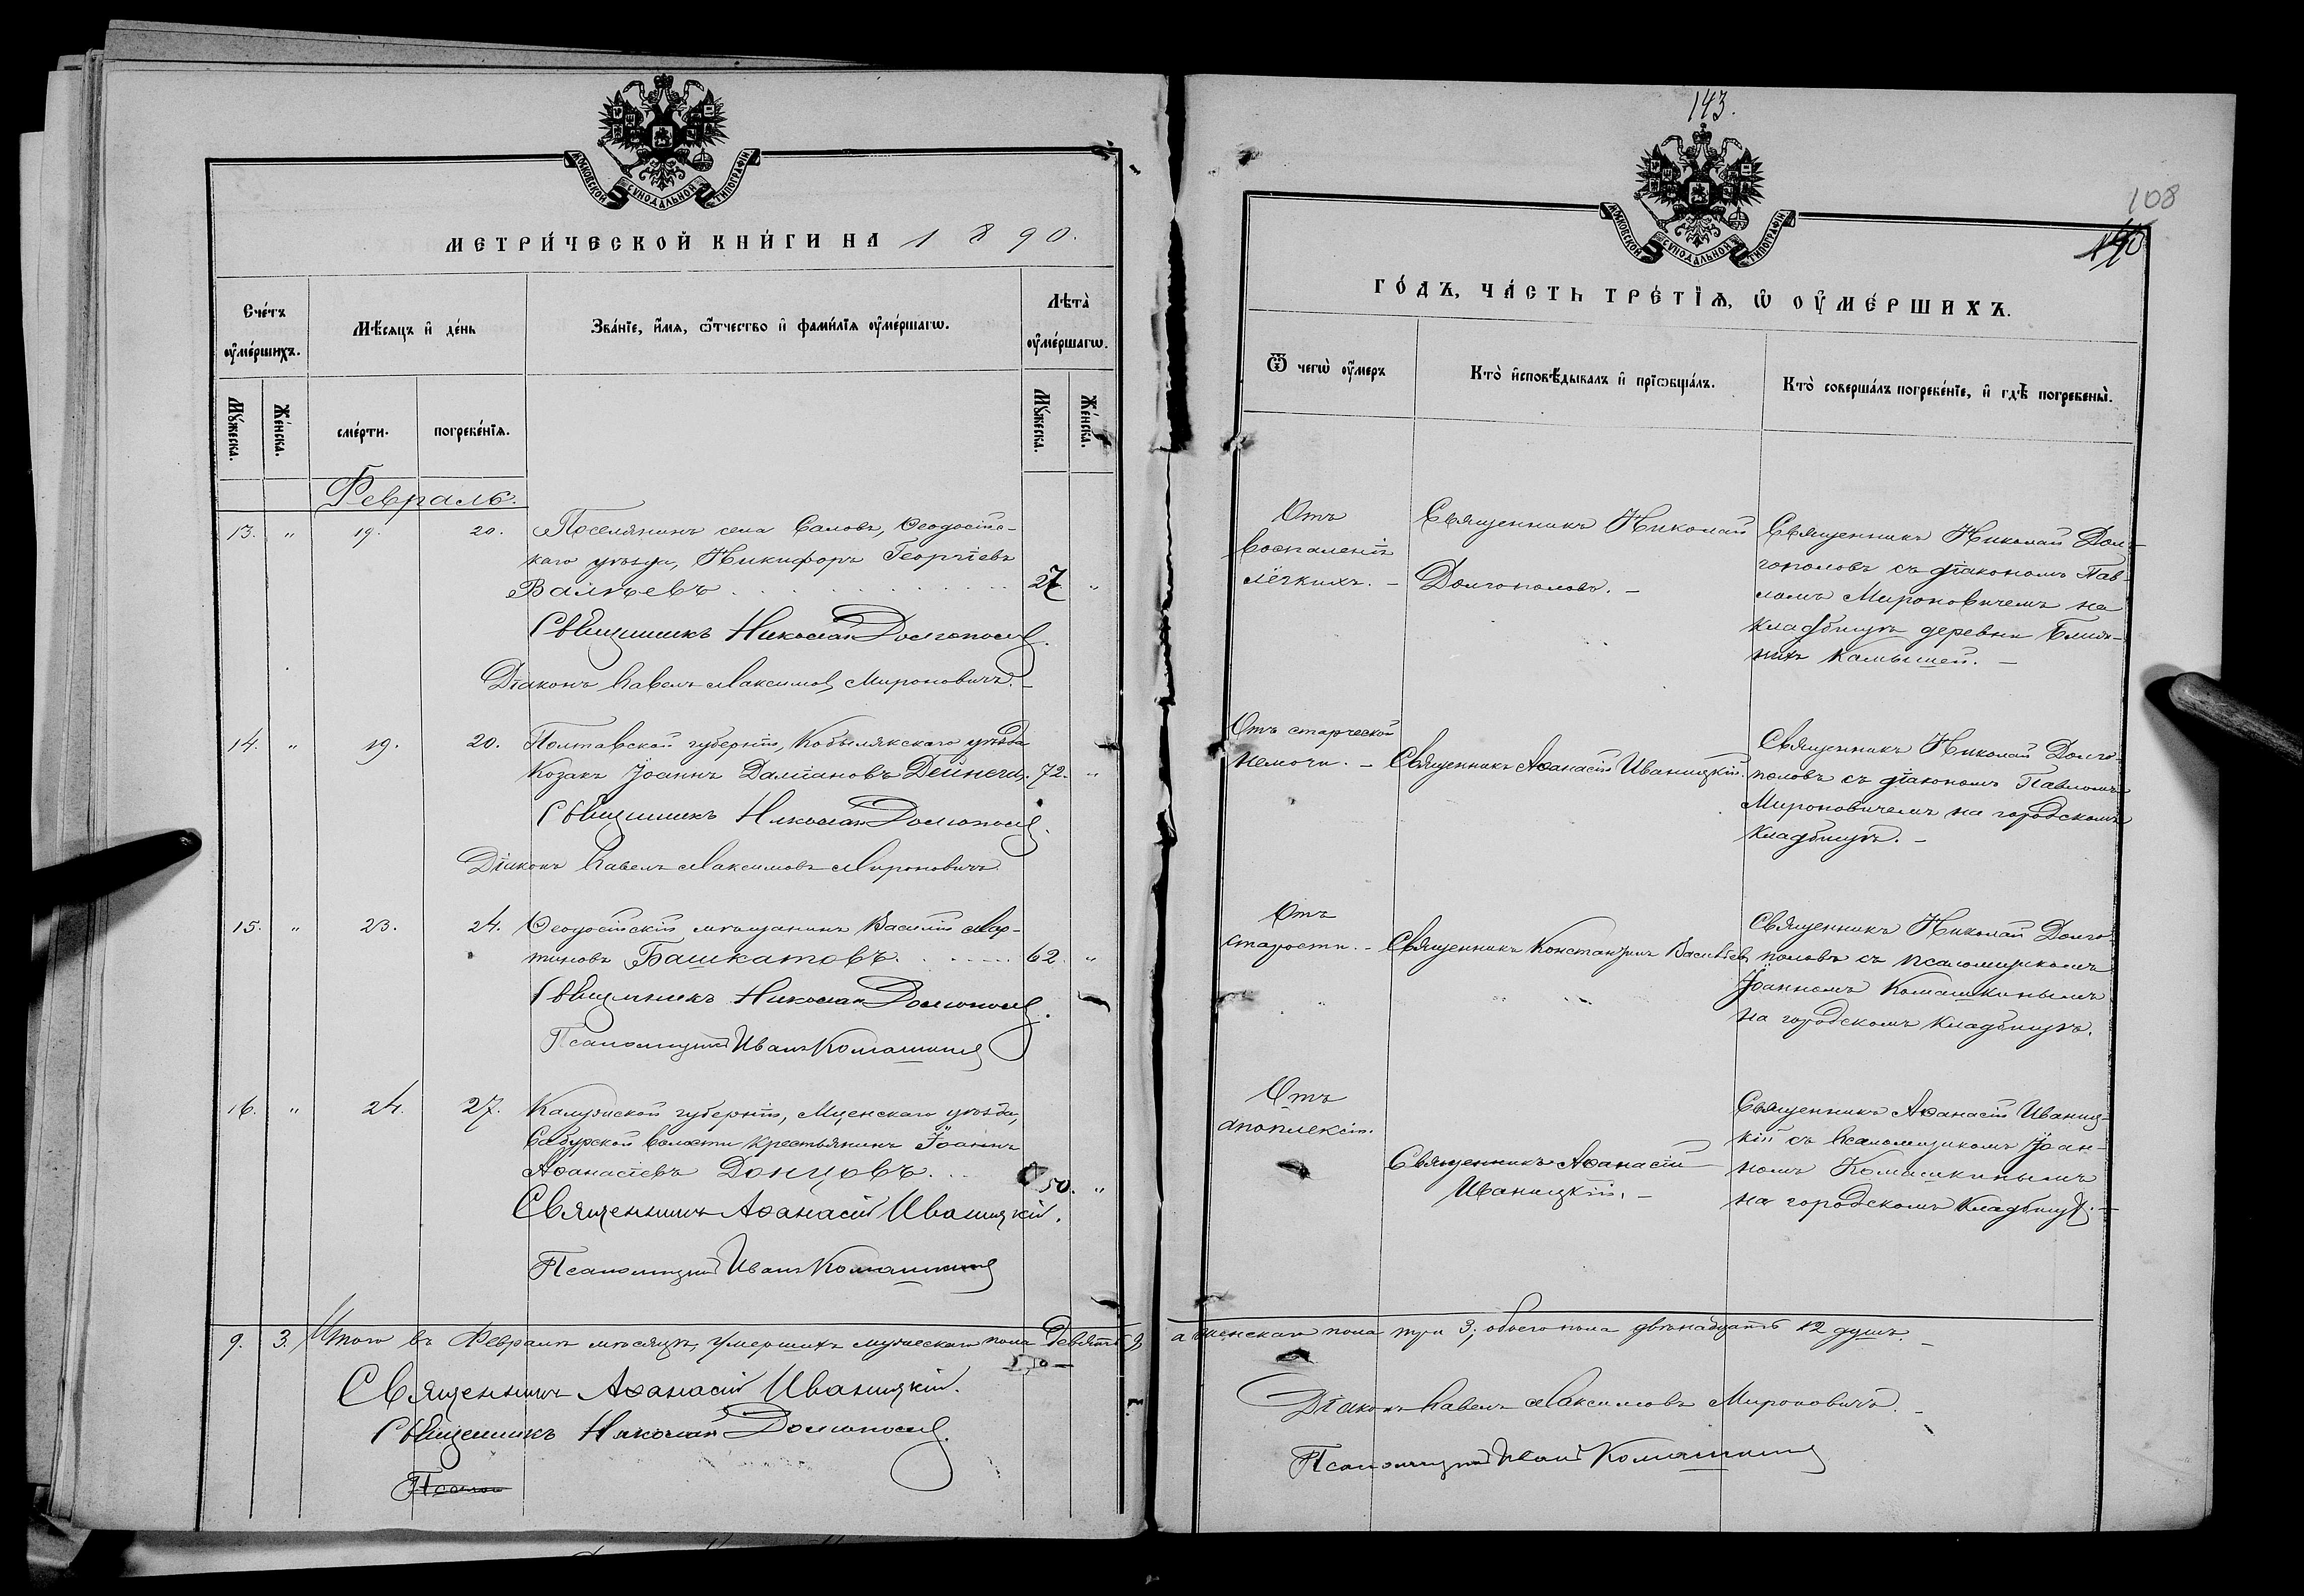 МОСКОВСКОЙ СѴНОДАЛЬНОЙ ТИПОГРАФІИ
МЕТРИ́ЧЕСКОЙ КНИ́ГИ НА 1890.
Сче́тъ ᲂу҆ме́ршихъ.
Мѣ́сяцъ и҆ де́нь
Зва́нїе, и҆́мя, ѻ҆́тчество и҆ фами́лїя ᲂу҆ме́ршагѡ.
Лѣта̀ ᲂу҆ме́ршагѡ.
Мꙋ́жеска.
Же́нска.
сме́рти.
погребе́нїя.
Мꙋ́жеска.
Же́нска.
Февраль.
13. " 19. 20. Поселянинъ села Саловъ, Ѳеодосійс-
каго уѣзда, Никифоръ Георгіевъ
Валѣевъ 27 "
Священникъ Николай Долгополовъ.
Діаконъ Павелъ Максимовъ Мироновичъ. –
14. " 19. 20. Полтавской губерніи, Кобылякскаго уѣзда
Козакъ Іоаннъ Даміановъ Дейнега. 72. "
Священникъ Николай Долгополовъ.
Діаконъ Павелъ Максимовъ Мироновичъ.
15. " 23. 24. Ѳеодосійскій мѣщанинъ Василій Мар-
тиновъ Башкатовъ. 62. "
Священникъ Николай Долгополовъ.
Псаломщикъ Иванъ Комашкинъ
16. " 24. 27. Калужской губерніи, Мценскаго уѣзда,
Сабурской волости крестьянинъ Іоаннъ
Аѳанасіевъ Донцовъ. 50. "
Священникъ Аѳанасій Иваницкій.
Псаломщикъ Иванъ Комашкинъ
9. 3. Итого въ Февралѣ мѣсяцѣ, умершихъ мужескаго пола девять 9
Священникъ Аѳанасій Иваницкій.
Священникъ Николай Долгополовъ.
Псалом
143.
108
МОСКОВСКОЙ СѴНОДАЛЬНОЙ ТИПОГРАФІИ
ГО́ДЪ, ЧА́СТЬ ТРЕ́ТЇѦ, Ѡ҆ ОУ҆МЕ́РШИХЪ.
Ѿ чегѡ̀ ᲂу҆́меръ
Кто̀ и҆сповѣ́дывалъ и҆ прїѡбща́лъ.
Кто̀ соверша́лъ погребе́нїе, и҆ гдѣ̀ погребены̀.
Отъ
воспаленія
лёгкихъ. –
Священникъ Николай
Долгополовъ. –
Священникъ Николай Дол-
гополовъ съ діакономъ Пав-
ломъ Мироновичемъ на
кладбищѣ деревни Ближ-
нихъ Камышей. –
Отъ старческой
немочи. –
Священникъ Аѳанасій Иваницкій.
Священникъ Николай Долго-
половъ съ діакономъ Павломъ
Мироновичемъ на городскомъ
кладбищѣ. –
Отъ
старости. –
Священникъ Константинъ Васильевъ
Священникъ Николай Долго-
половъ съ псаломщикомъ
Іоанномъ Комашкинымъ
на городскомъ кладбищѣ.
Отъ
апоплексіи.
Священникъ Аѳанасій
Иваницкій. –
Священникъ Аѳанасій Иваниц-
кій съ псаломщикомъ Іоан-
номъ Комашкинымъ
на городскомъ кладбищѣ. –
а женскаго пола три 3; обоего пола двѣнадцать 12 душъ. –
Діаконъ Павелъ Максимовъ Мироновичъ. –
Псаломщикъ Иванъ Комашкинъ